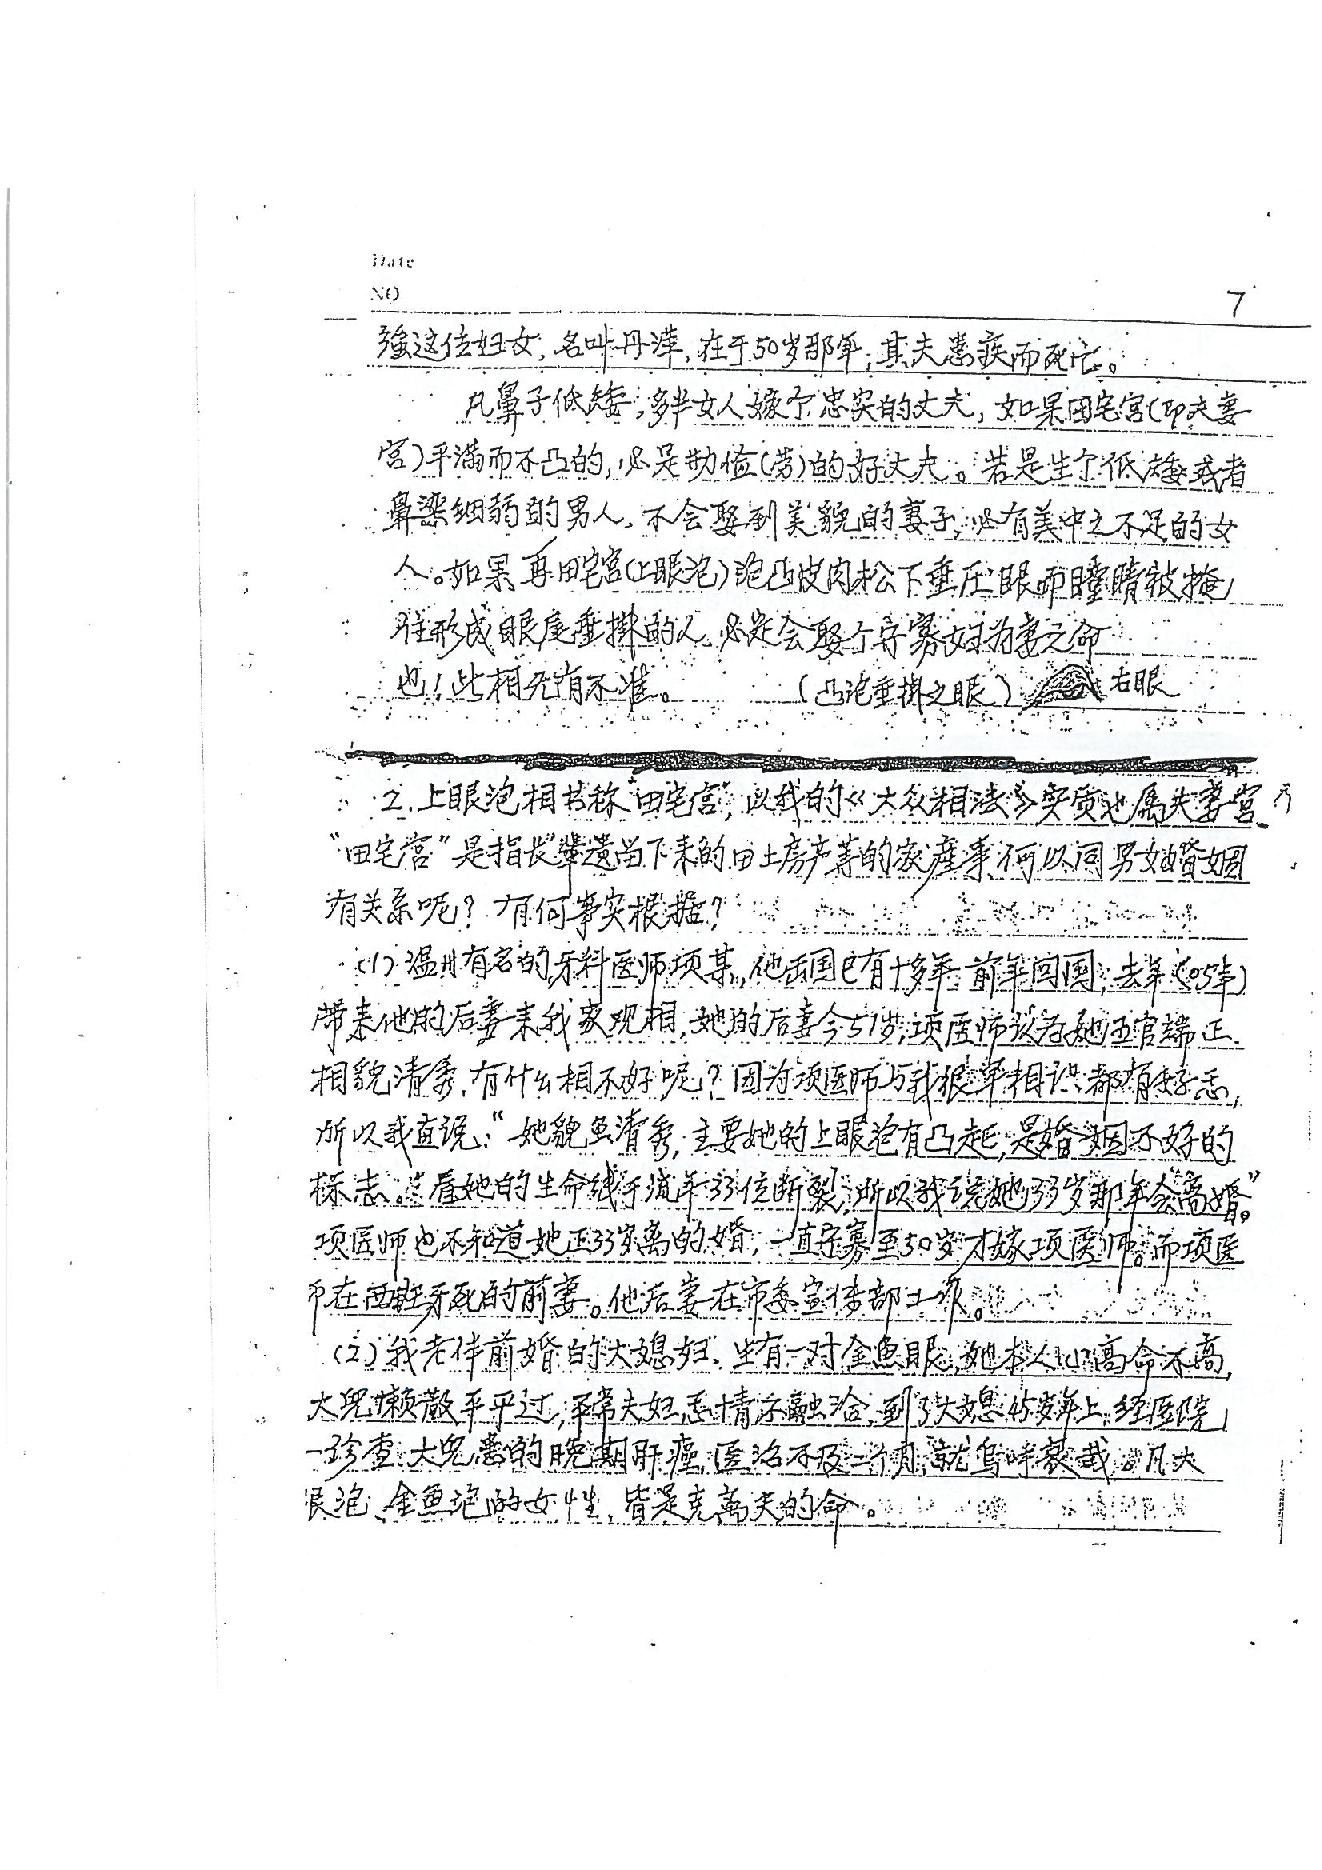 Date
NO
7
强这位妇女,名叫丹萍,在于50岁那年,其夫患疾而死亡。
凡鼻子低矮,多半女人嫁个忠实的丈夫,如果田宅宫(即夫妻
宫)平满而不凸的,必是勤俭(劳)的好丈夫。若是生个低矮或者
鼻梁细弱的男人,不会娶到美貌的妻子,必有美中之不足的女
人。如果再田宅宫(上眼泡)泡凸皮肉松下垂压眼而瞳睛被掩
往形成眼尾垂掛的人,必定会娶个守寡妇为妻之命
也!此相无有不准。 (凸泡垂掛之眼) 右眼
2.上眼泡相书称"田宅宫",以我的《大众相法》实质也属夫妻宫
"田宅宫"是指长辈遗留下来的田土房产等的家产事何以同男女婚姻
有关系呢?有何事实根据?
(1)温州有名的牙科医师项某,他出国已有十多年,前年回国,去年(05年)
带来他的后妻来我家观相,她的后妻今51岁,项医师认为她五官端正,
相貌清秀,有什么相不好呢?因为项医师与我很早相识都有好感,
所以我直说:"她貌虽清秀,主要她的上眼泡有凸起,是婚姻不好的
标志,看她的生命线于流年33位断裂,所以我说她33岁那年会离婚"。
项医师也不知道她正33岁离的婚,一直守寡至50岁才嫁项医师。而项医
师在西班牙死的前妻。他后妻在市委宣传部工作。
(2)我老伴前婚的大媳妇,生有一对金鱼眼,她本人心高命不高,
大儿懒散平平过,平常夫妇感情不融洽,到了大媳45岁年上,经医院
一诊查,大儿患的晚期肝癌,医治不及二个月,就乌呼哀哉。凡大
眼泡、金鱼泡的女性,皆是克离夫的命。